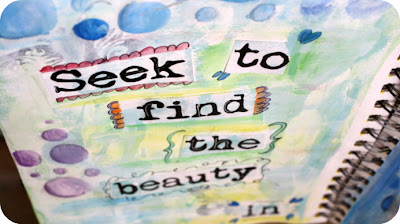 Seek to
find
the
beauty
in